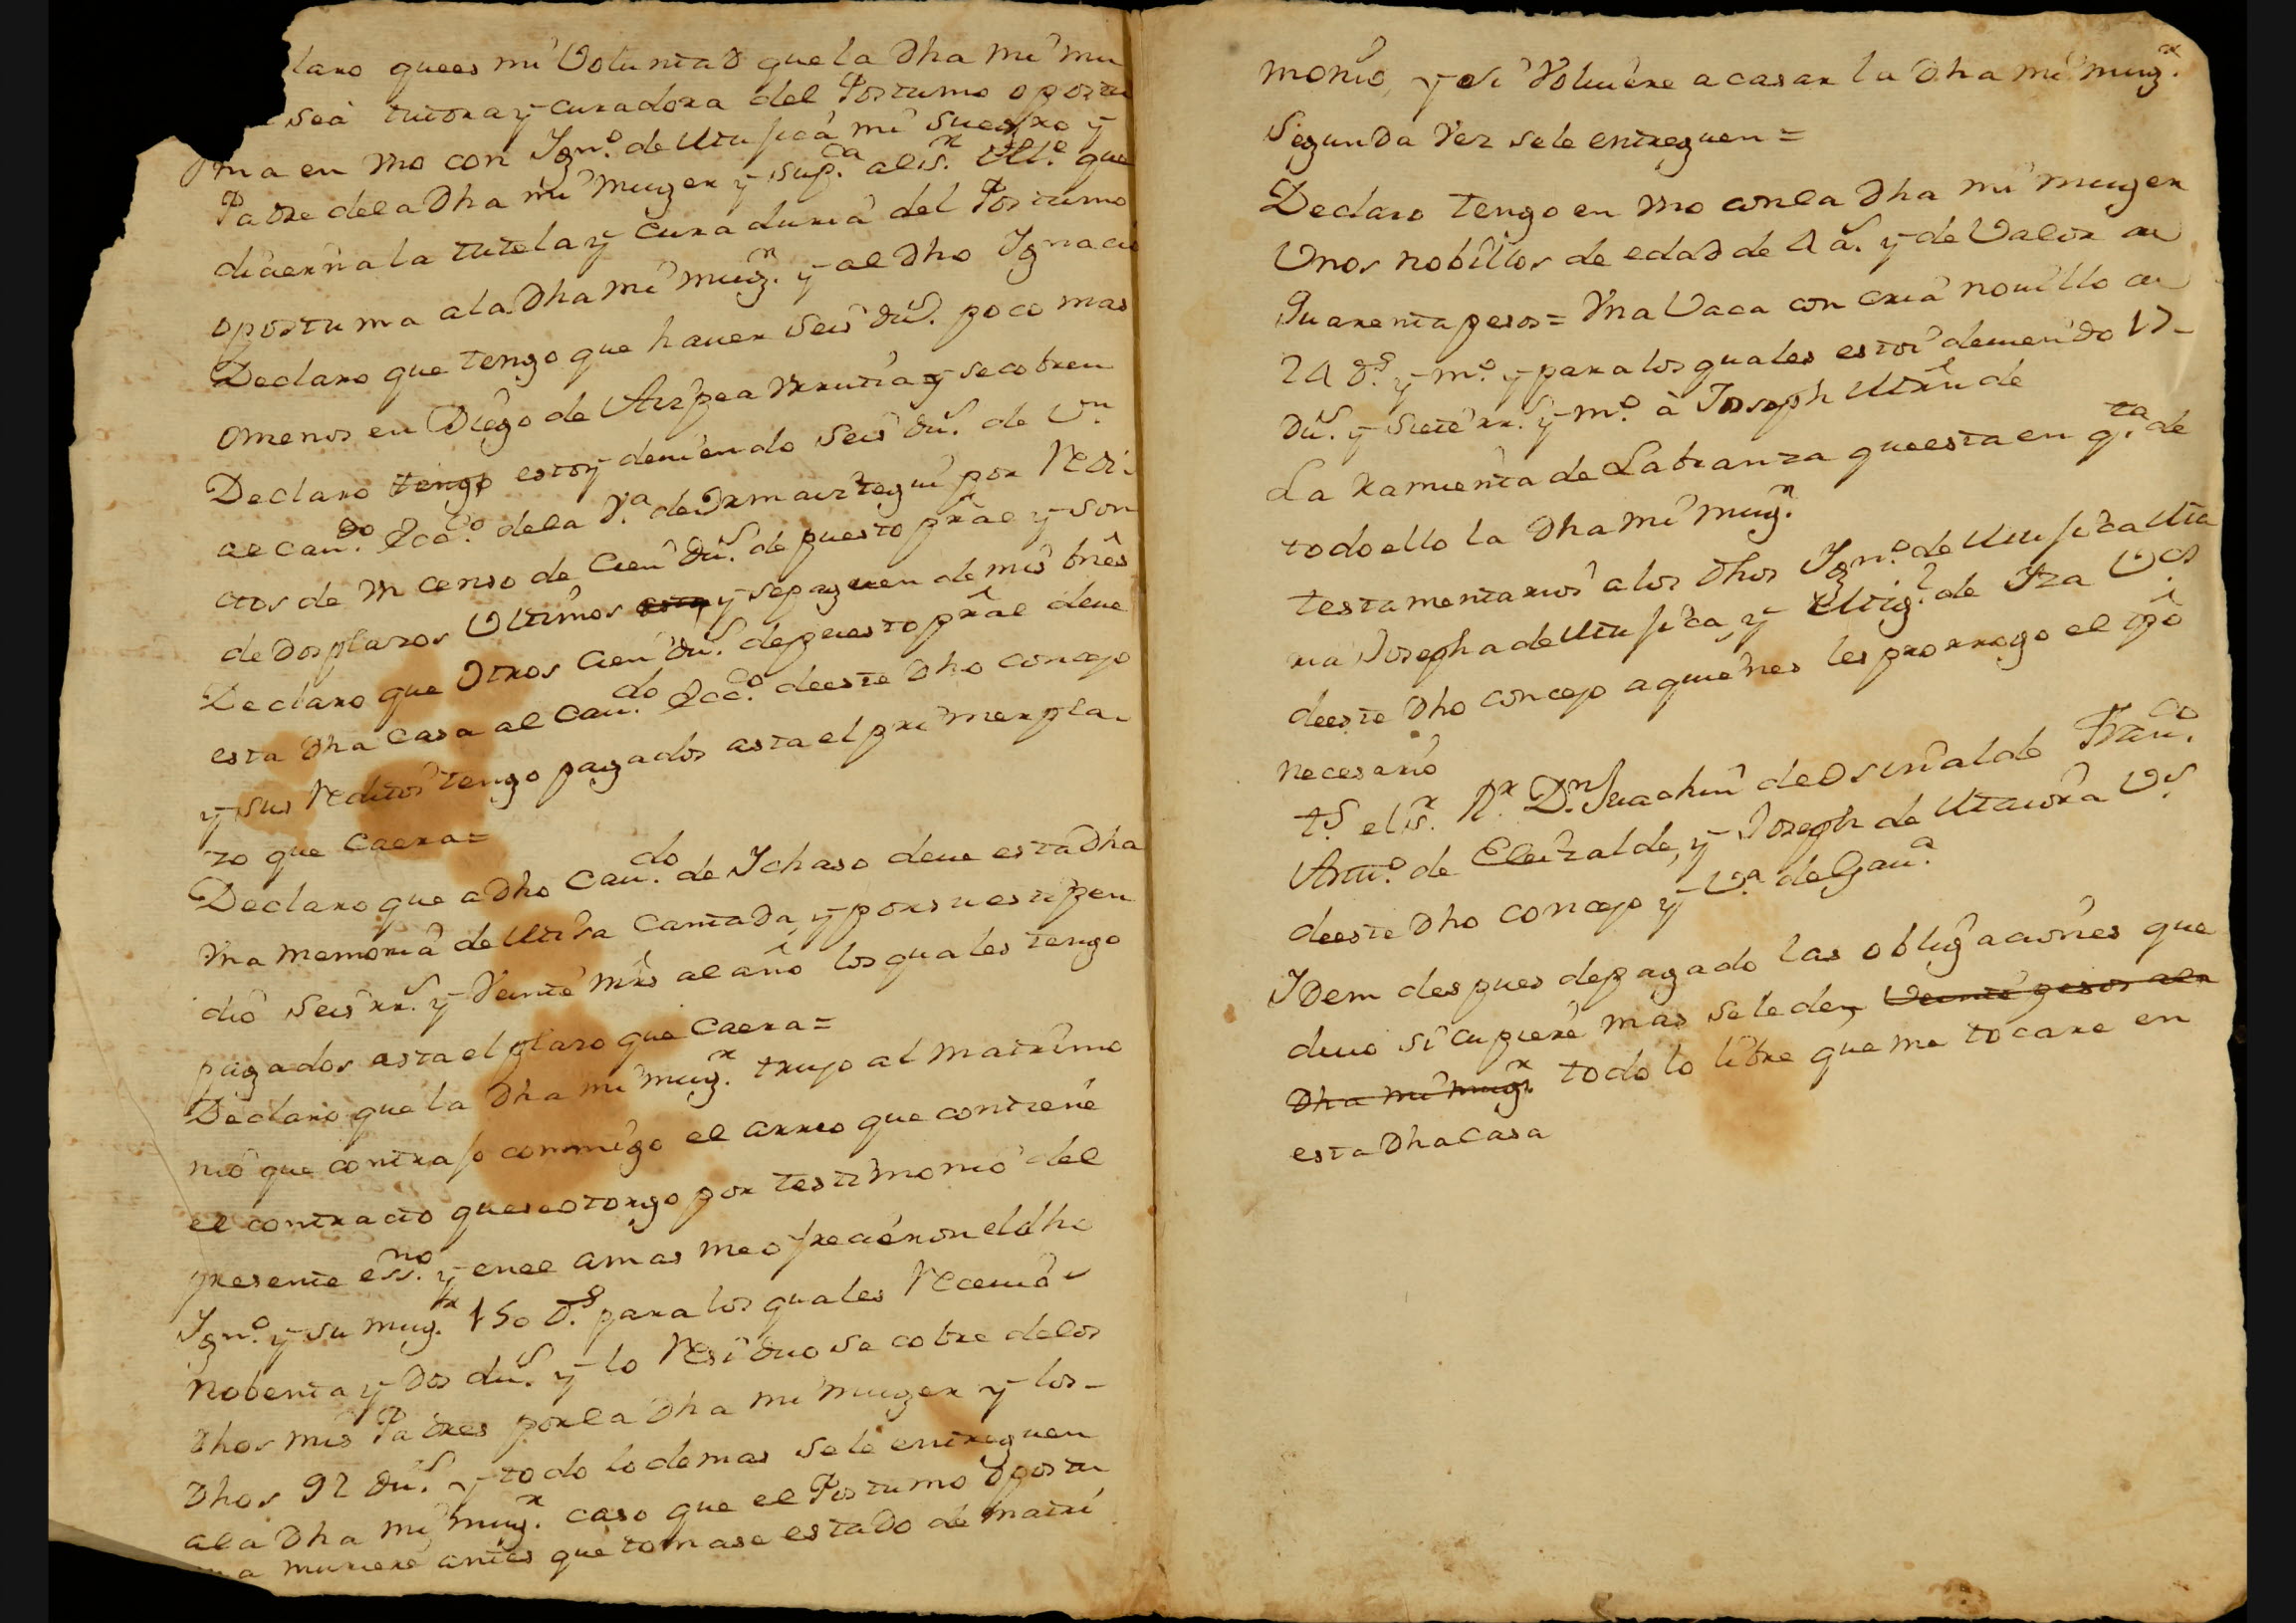 laro quees mi Voluntad que la Dha mi mu
sea tutora y curadora del Postumo o postu
ma en mo con Ign.º de Mu sica mi suegro y
Padre dela Dha mi muger y sup.ca al s.r Alc.e que
dicierna la tutela y curaduria del Postumo
o postuma ala Dha mi mug.r y al Dho Ignacio
Declaro que tengo que hauer seis du.s poco mas
omenos en Diego de Aizpea Vrrutia y se cobren
Declaro tengo estoy deuiendo seis du.s de v.n
al cau.do Ecc.co dela V.a de Ormaiztegui por redi-
ctos de vn censo de Cien du.s de puesto pral y son
de dos plazos Vltimos y se paguen de mis bnes
Declaro que otros Cien du.s de puesto pral deue
esta Dha Casa al Cau.do Ecc.co deeste Dho concejo
y sus reditos tengo pagados asta el primer pla-
zo que Caera=
Declaro que a Dho Cau.do de Ichaso deue esta Dha
Vna memoria de Misa Cantada, y por su estipen
dio seis rr.s y Veinte mrs al año los quales tengo
pagados asta el plazo que Caera=
Declaro que la Dha mi mug.r trujo al matrimo
nio que contrajo conmigo el arreo que contiene
el contracto que se otorgo por testimonio del
presente ess.no y enel amas me ofrecieron el dho
Ign.º y su mug.r 150 D.s para los quales receui
Nobenta y Dos du.s y lo residuo se cobre delos
Dhos mis Padres por la Dha mi muger y los-
Dhos 92 du.s y todo lo demas se le entreguen
ala Dha mi mug.r caso que el Postumo o postu
ma muriere antes que tomase estado de matri
monio, y si Voluiere a casar la Dha mi mug.r
Segunda Vez se le entreguen=
Declaro tengo en mo con la Dha mi muger
Vnos nobillos de edad de 4 a.s y de Valor de
Quarenta pesos= Vna Vaca con cria nouillo de
24 D.s y m.º y para los quales estoi deuiendo 17-
Du.s y siete rr.s y m.º à Joseph
La Ramienta de Labranza que esta en q.ta de
todo ello la Dha mi mug.r
testamentarios a los Dhos Ign.º de Mu sica Ma
ria Josepha de Mu sica, y Mig.l de Iza V.os
deeste Dho concejo a quienes les prorrogo el tpo
necesario
t.s el s.r R.r D.n Juachin de Osinalde Fran.co
Anto.º de Eleizalde, y Joseph de V.s
deeste Dho concejo y V.a de Gau.a
Idem despues de pagado las obligaciones que
deuo si cupiere mas se le den Veinte pesos ala
Dha mi mug.r todo lo libre que me tocare en
esta Dha Casa